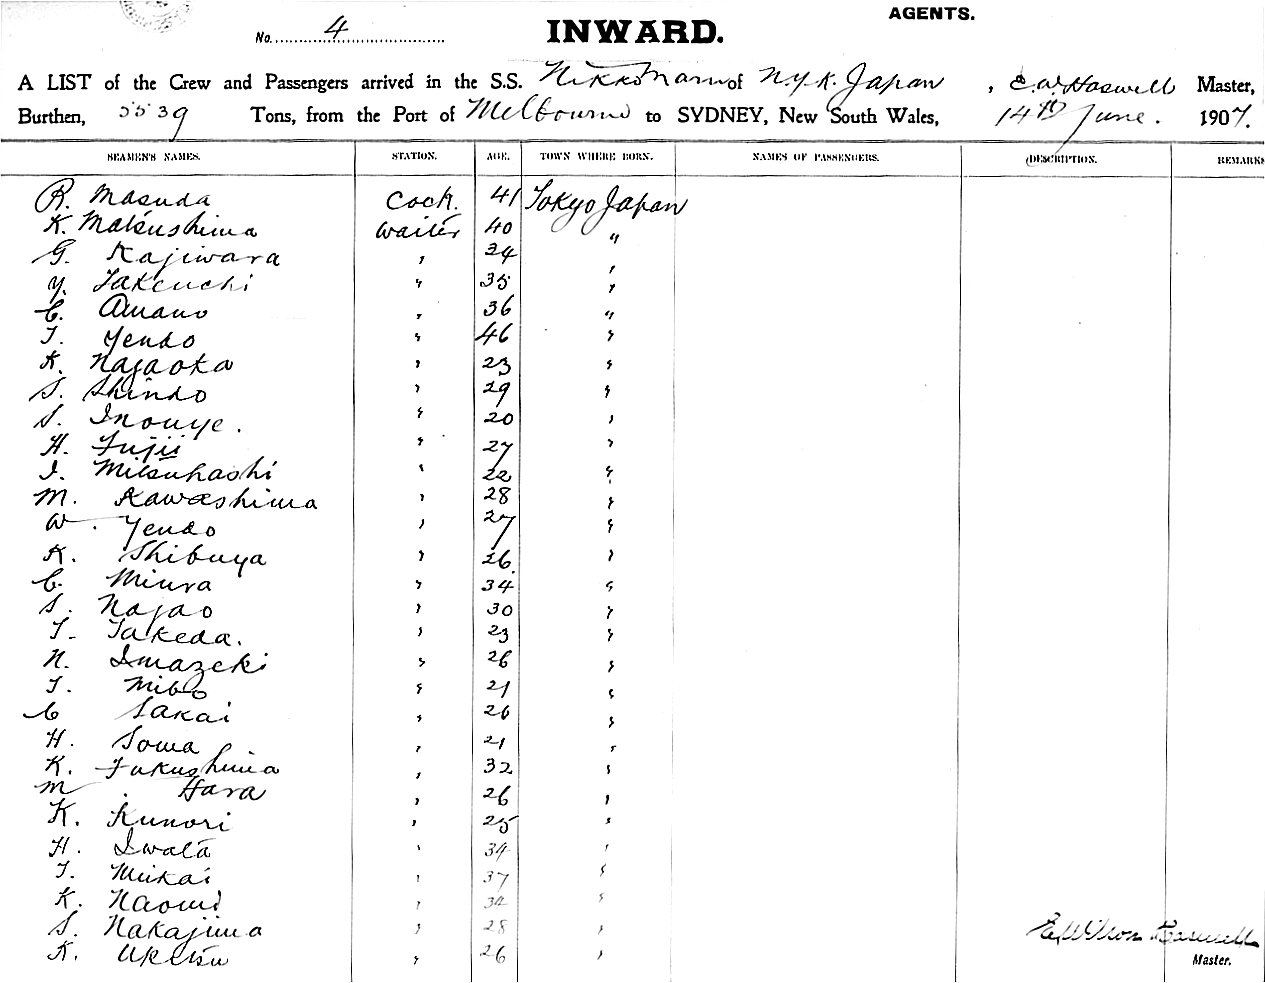 AGENTS.
No. 4 INWARD.
A LIST of the Crew and Passengers arrived in the S.S. Nikko Maru of N.Y.K. Japan, E.W. Haswell Master,
Burthen, 5539 Tons, from the Port of Melbourne to SYDNEY, New South Wales, 14th June. 1907.
SEAMEN'S NAMES. STATION. AGE. TOWN WHERE BORN. NAMES OF PASSENGERS. DESCRIPTION. REMARKS
R. Masuda Cook. 41 Tokyo Japan
K. Matsushima Waiter 40 "
G. Kajiwara " 34 "
Y. Takeuchi " 35 "
C. Amano " 36 "
T. Yendo " 46 "
K. Nagaoka " 23 "
S. Shindo " 29 "
S. Inouye. " 20 "
H. Fujii " 27 "
I. Mitsuhashi " 22 "
M. Kawashima " 28 "
W. Yendo " 27 "
K. Shibuya " 26. "
C. Miura " 34 "
S. Nagao " 30 "
T. Takeda. " 23 "
N. Imazeki " 26 "
T. " 21 "
C Sakai " 26 "
H. Sowa " 21 "
K. Fukushima " 32 "
M. Hara " 26 "
K. Kunori " 25 "
H. Iwata " 34 "
T. Mukai " 37 "
K. Naomi " 34 "
S. Nakajima " 28 "
K. " 26 "
E. Wilson Haswell
Master.